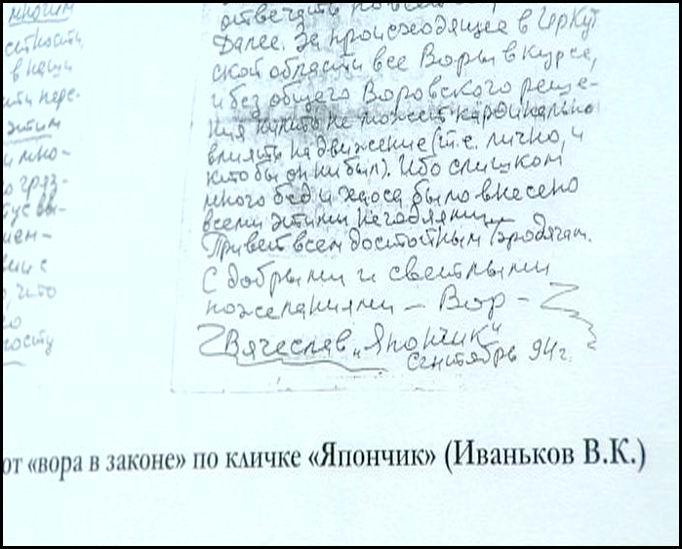 многим
в наши
этим
и мно-
что
отвечать
Далее. За происходящее в Иркут
ской области все Воры в курсе,
и без общего Воровского реше-
ния никто не может кардинально
влиять на движение (т.е. лично, и
кто бы он ни был). Ибо слишком
много бед и хаоса было внесено
всеми этими негодяями
Привет всем достойным бродягам.
С добрыми и светлыми
пожеланиями – Вор –
Вячеслав „Япончик"
сентябрь 94г.
от «вора в законе» по кличке «Япончик» (Иваньков В.К.)